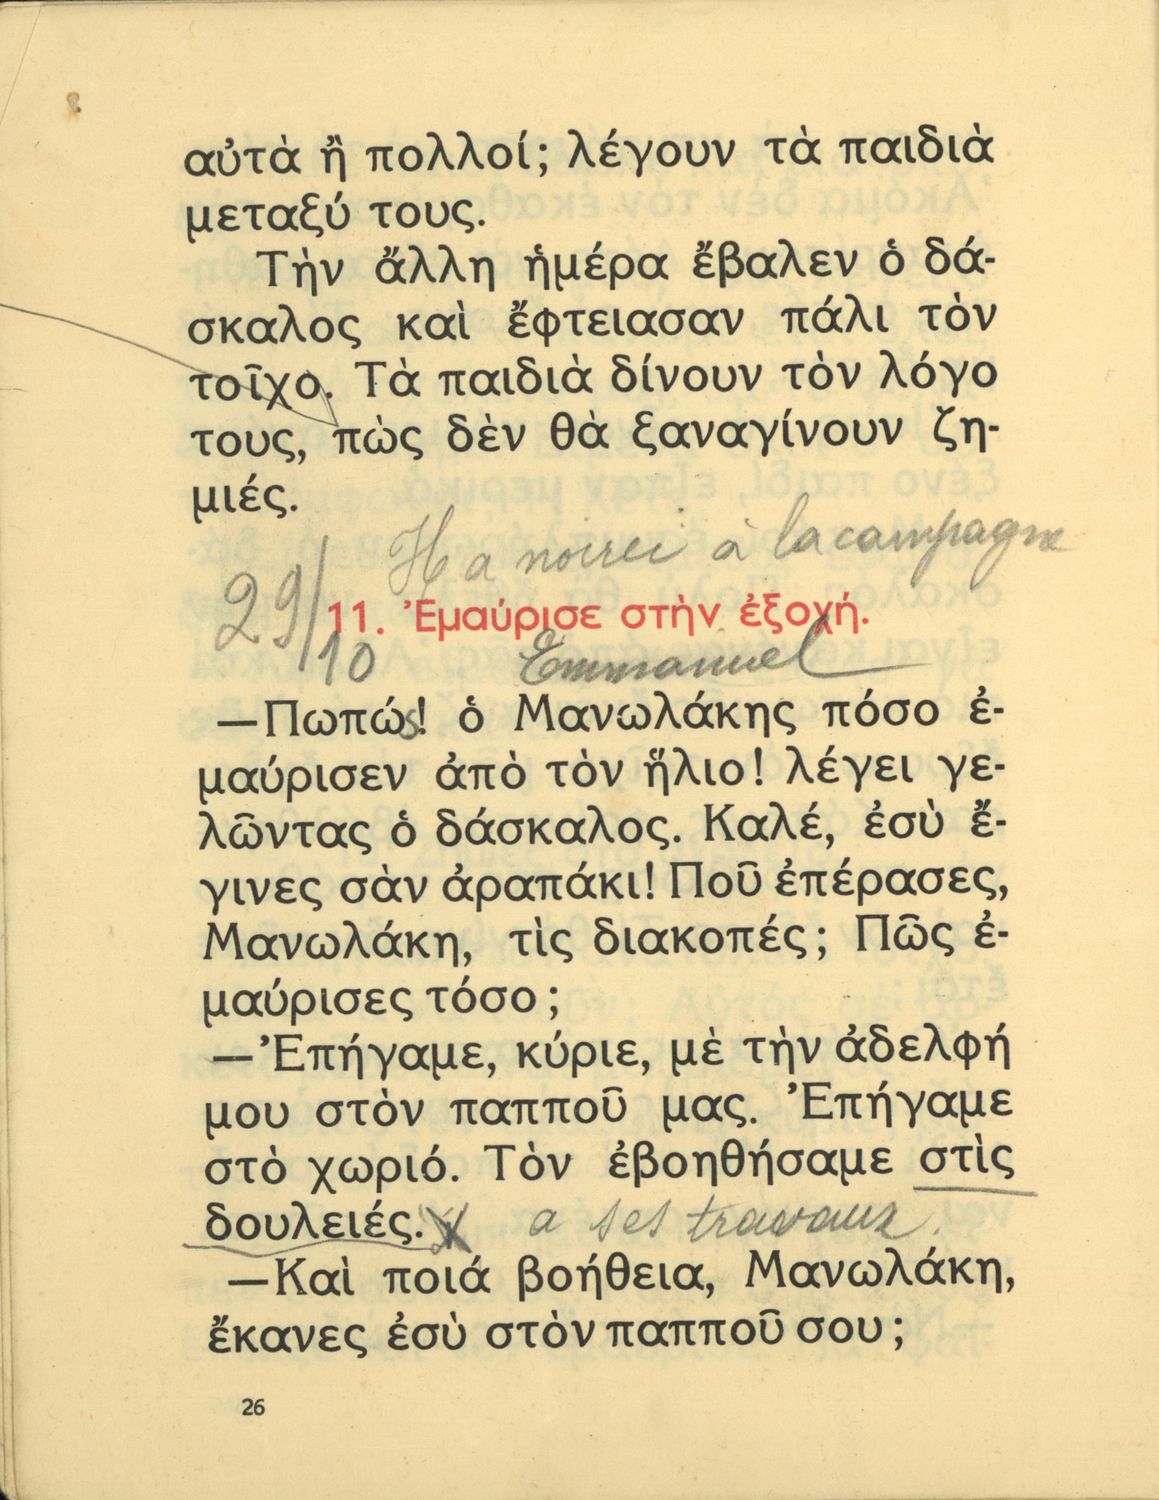 αὐτὰ ἢ πολλοί; λέγουν τὰ παιδιὰ
μεταξύ τους.
Τὴν ἄλλη ἡμέρα ἔβαλεν ὁ δά-
σκαλος καὶ ἔφτειασαν πάλι τὸν
τοῖχο. Τὰ παιδιὰ δίνουν τὸν λόγο
τους, πὼς δὲν θὰ ξαναγίνουν ζη-
μιές.
Il a noirci à la campagne
29/10
11. Ἐμαύρισε στὴν ἐξοχή.
Emmanuel
—Πωπώς! ὁ Μανωλάκης πόσο ἐ-
μαύρισεν ἀπὸ τὸν ἥλιο! λέγει γε-
λῶντας ὁ δάσκαλος. Καλέ, ἐσὺ ἔ-
γινες σὰν ἀραπάκι! Ποῦ ἐπέρασες,
Μανωλάκη, τὶς διακοπές; Πῶς ἐ-
μαύρισες τόσο;
—Ἐπήγαμε, κύριε, μὲ τὴν ἀδελφή
μου στὸν παπποῦ μας. Ἐπήγαμε
στὸ χωριό. Τὸν ἐβοηθήσαμε στὶς
δουλειές. a ses travaux.
—Καὶ ποιά βοήθεια, Μανωλάκη,
ἔκανες ἐσὺ στὸν παπποῦ σου;
26